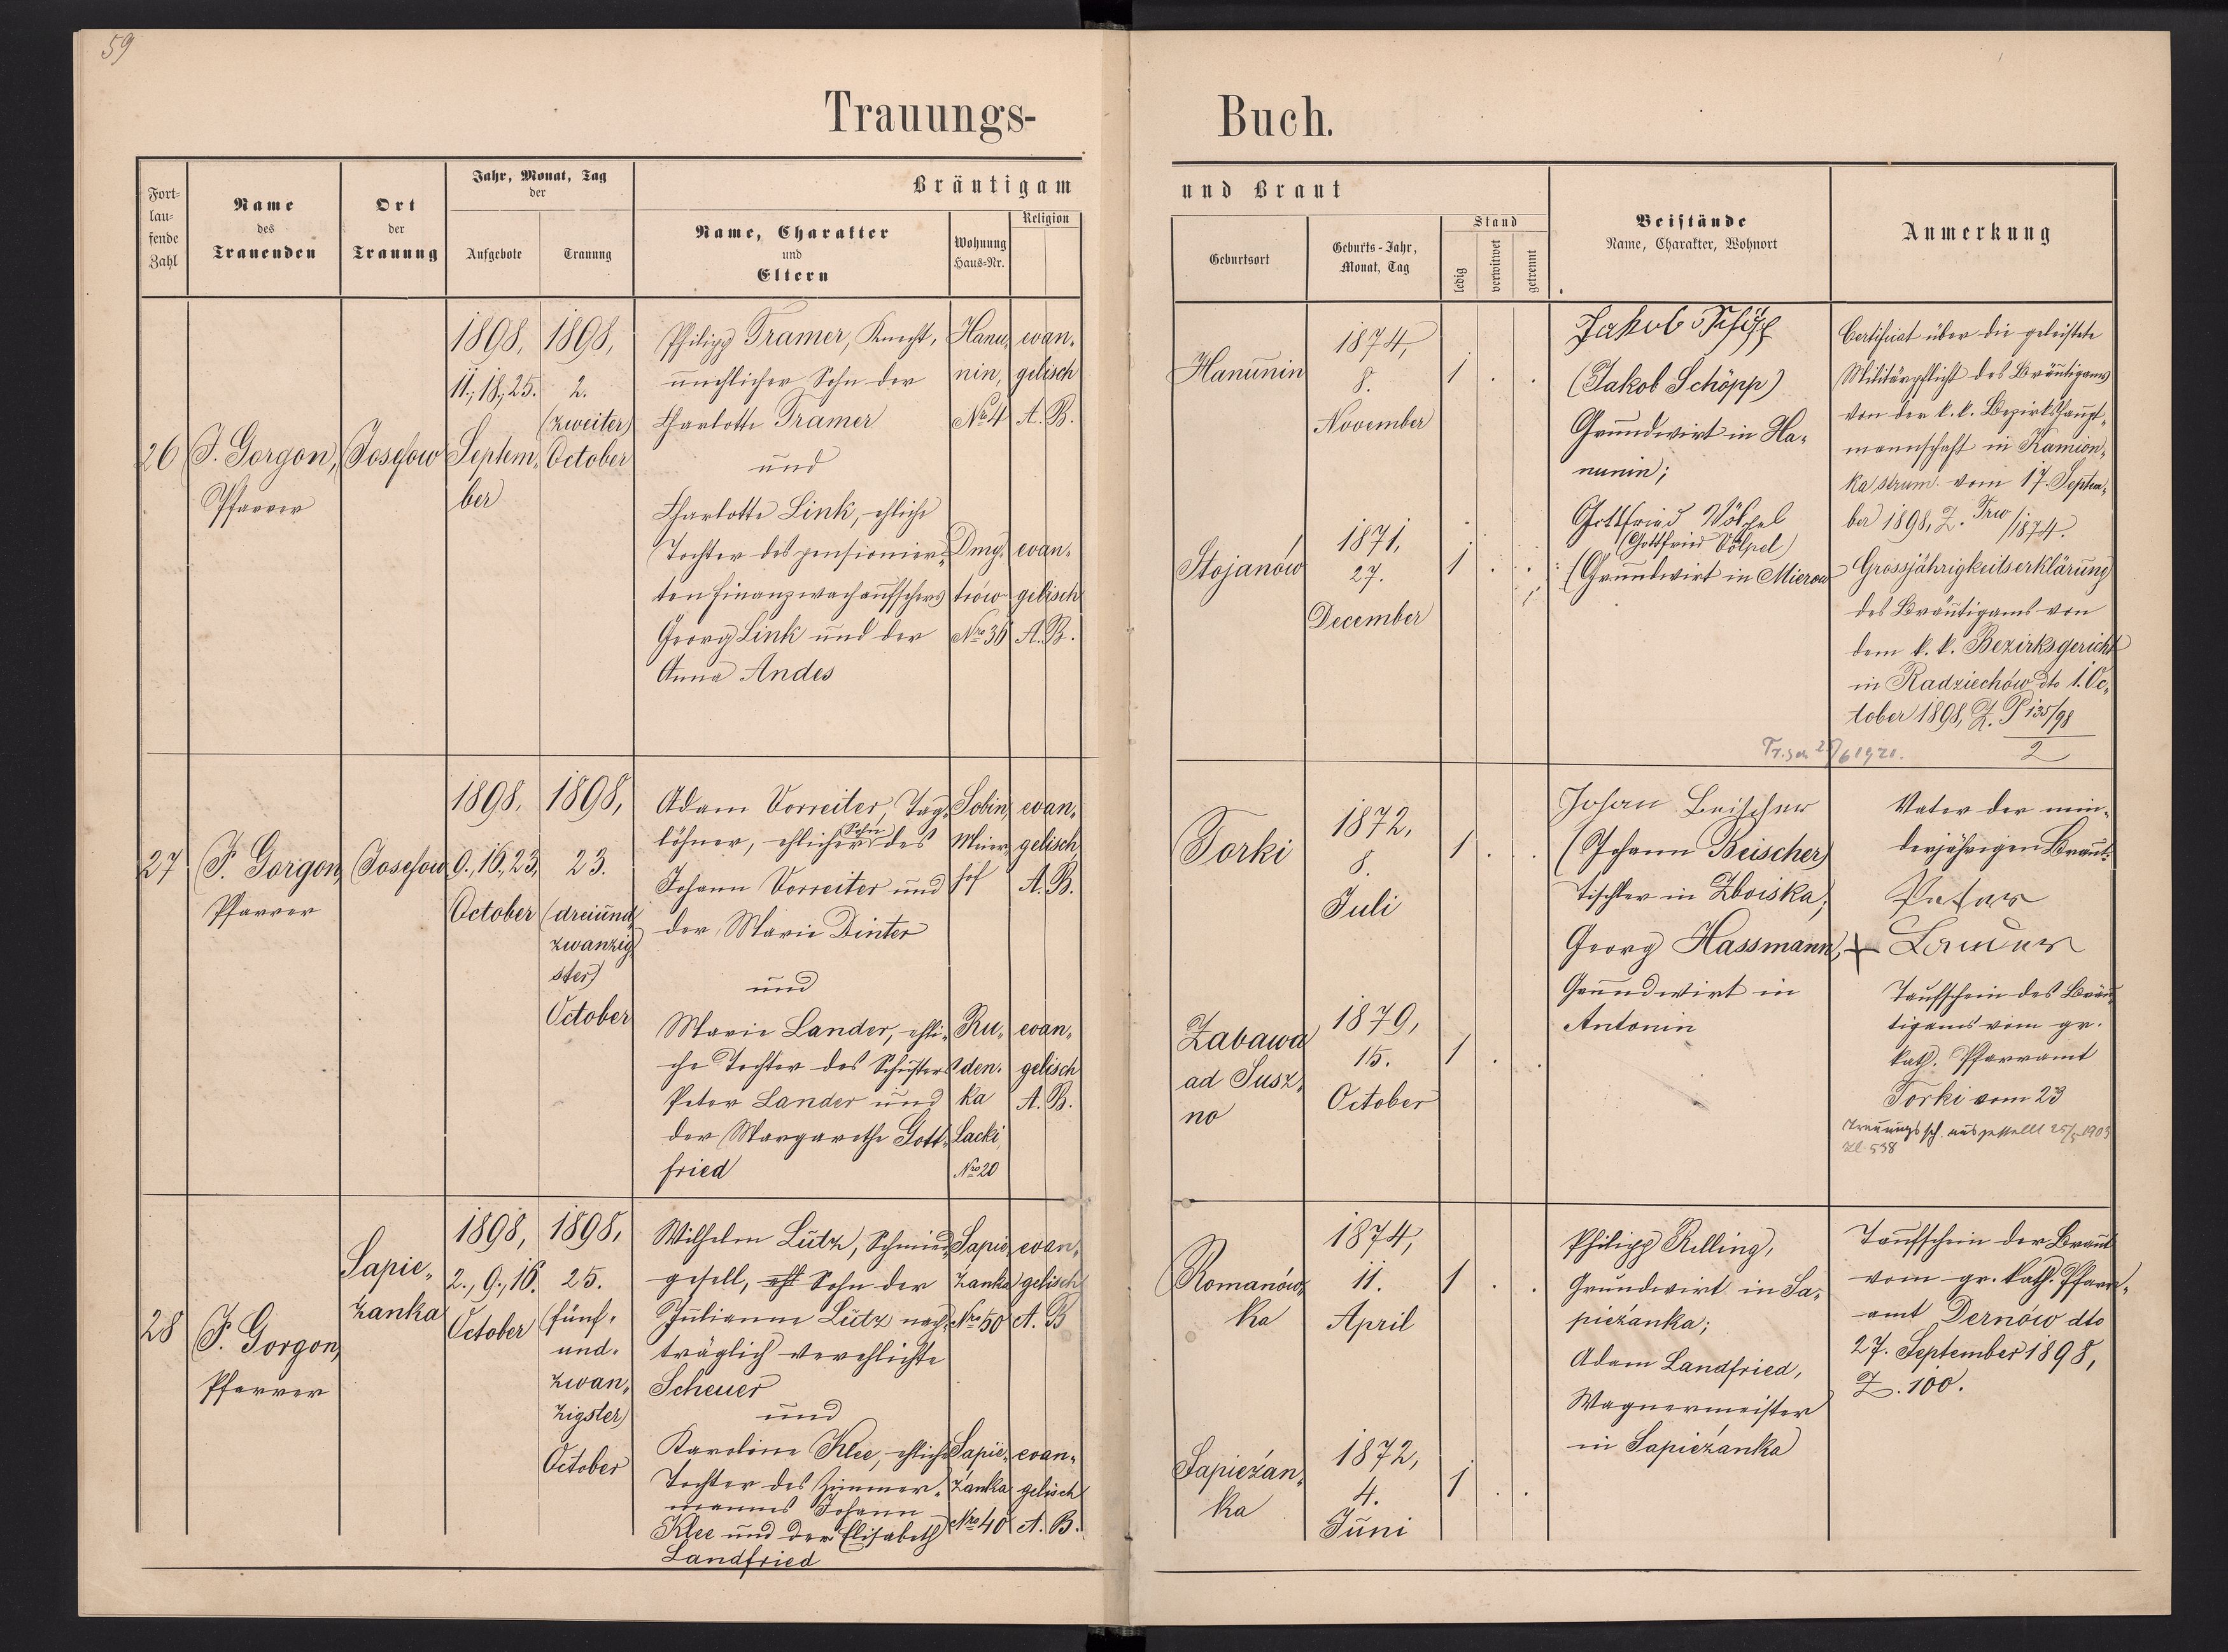 59
Trauungs-
Buch.
Fort-
lau-
fende
Zahl
Name
des
Trauenden
Ort
der
Trauung
Jahr, Monat, Tag
der
Aufgebote
Trauung
Bräutigam
und Braut
Name, Charakter
und
Eltern
Wohnung
Haus-Nr.
Religion
Geburtsort
Geburts-Jahr,
Monat, Tag
Stand
ledig
verwitwet
getrennt
Beistände
Name, Charakter, Wohnort
Anmerkung
26
J. Gorgon,
Pfarrer
Josefow
1898,
11., 18., 25.
Septem-
ber
1898,
2.
(zweiter)
October
Philipp Tramer, Knecht,
unehlicher Sohn der
Charlotte Tramer
und
Charlotte Link, ehliche
Tochter des pensionier-
ten Finanzwachaufsehers
Georg Link und der
Anna Andes
Hanu-
nin,
Nro 4
evan-
gelisch
A. B.
Dmy-
trów
Nro 36
evan-
gelisch
A. B.
Hanunin
1874,
8.
November
1 . .
Stojanów
1871,
27.
December
1 . .
Jakob Schöpp
(Jakob Schöpp)
Grundwirt in Ha-
nunin;
Gottfried Völpel
(Gottfried Völpel)
Grundwirt in Mierow
Certificat über die geleistete
Militärpflicht des Bräutigams
von der k. k. Bezirkshaupt-
mannschaft in Kamion-
ka strum. vom 17. Septem-
ber 1898, Z. /1874.
Grossjährigkeitserklärung
des Bräutigams von
dem k. k. Bezirksgericht
in Radziechów dto 1. Oc-
tober 1898, Z. P 135/98
2
27
J. Gorgon,
Pfarrer
Josefow
1898,
9., 16., 23.
October
1898,
23.
(dreiund-
zwanzig-
ster)
October
Adam Vorreiter, Tag-
löhner, ehlicher Sohn des
Johann Vorreiter und
der Marie Dinter
und
Marie Lander, ehli-
che Tochter des Schusters
Peter Lander und
der Margarethe Gott-
fried
Sobin,
Meier-
hof
evan-
gelisch
A. B.
Ru-
den-
ka
Lacki,
Nro 20
evan-
gelisch
A. B.
Torki
1872,
8.
Juli
1 . .
Zabawa
ad Susz-
no
1879,
15.
October
1 . .
Johan Beischer
(Johann Beischer)
Tischler in Zboiska;
Georg Hassmann, +
Grundwirt in
Antonin
Vater der min-
derjährigen Braut:
Peter
Lander
Taufschein des Bräu-
tigams vom gr.
kath. Pfarramt
Torki vom 23
Trauungssch. ausgestellt 25/5 1903
Zl. 538
28
J. Gorgon,
Pfarrer
Sapie-
żanka
1898,
2., 9., 16.
October
1898,
25.
(fünf-
und-
zwan-
zigster)
October
Wilhelm Lutz, Schmied-
gesell, Sohn der
Julianne Lutz nach-
träglich verehlichte
Scheuer
und
Karoline Klee, ehliche
Tochter des Zimmer-
mannes Johann
Klee und der Elisabeth
Landfried
Sapie-
żanka
Nro 50
evan-
gelisch
A. B
Sapie-
żanka
Nro 40
evan-
gelisch
A. B.
Romanów-
ka
1874,
11.
April
1 . .
Sapieżan-
ka
1872,
4.
Juni
1 . .
Philipp Rilling,
Grundwirt in Sa-
pieżanka;
Adam Landfried,
Wagnermeister
in Sapieżanka
Taufschein der Braut
vom gr. kath. Pfarr-
amt Dernów dto
27. September 1898,
Z. 100.